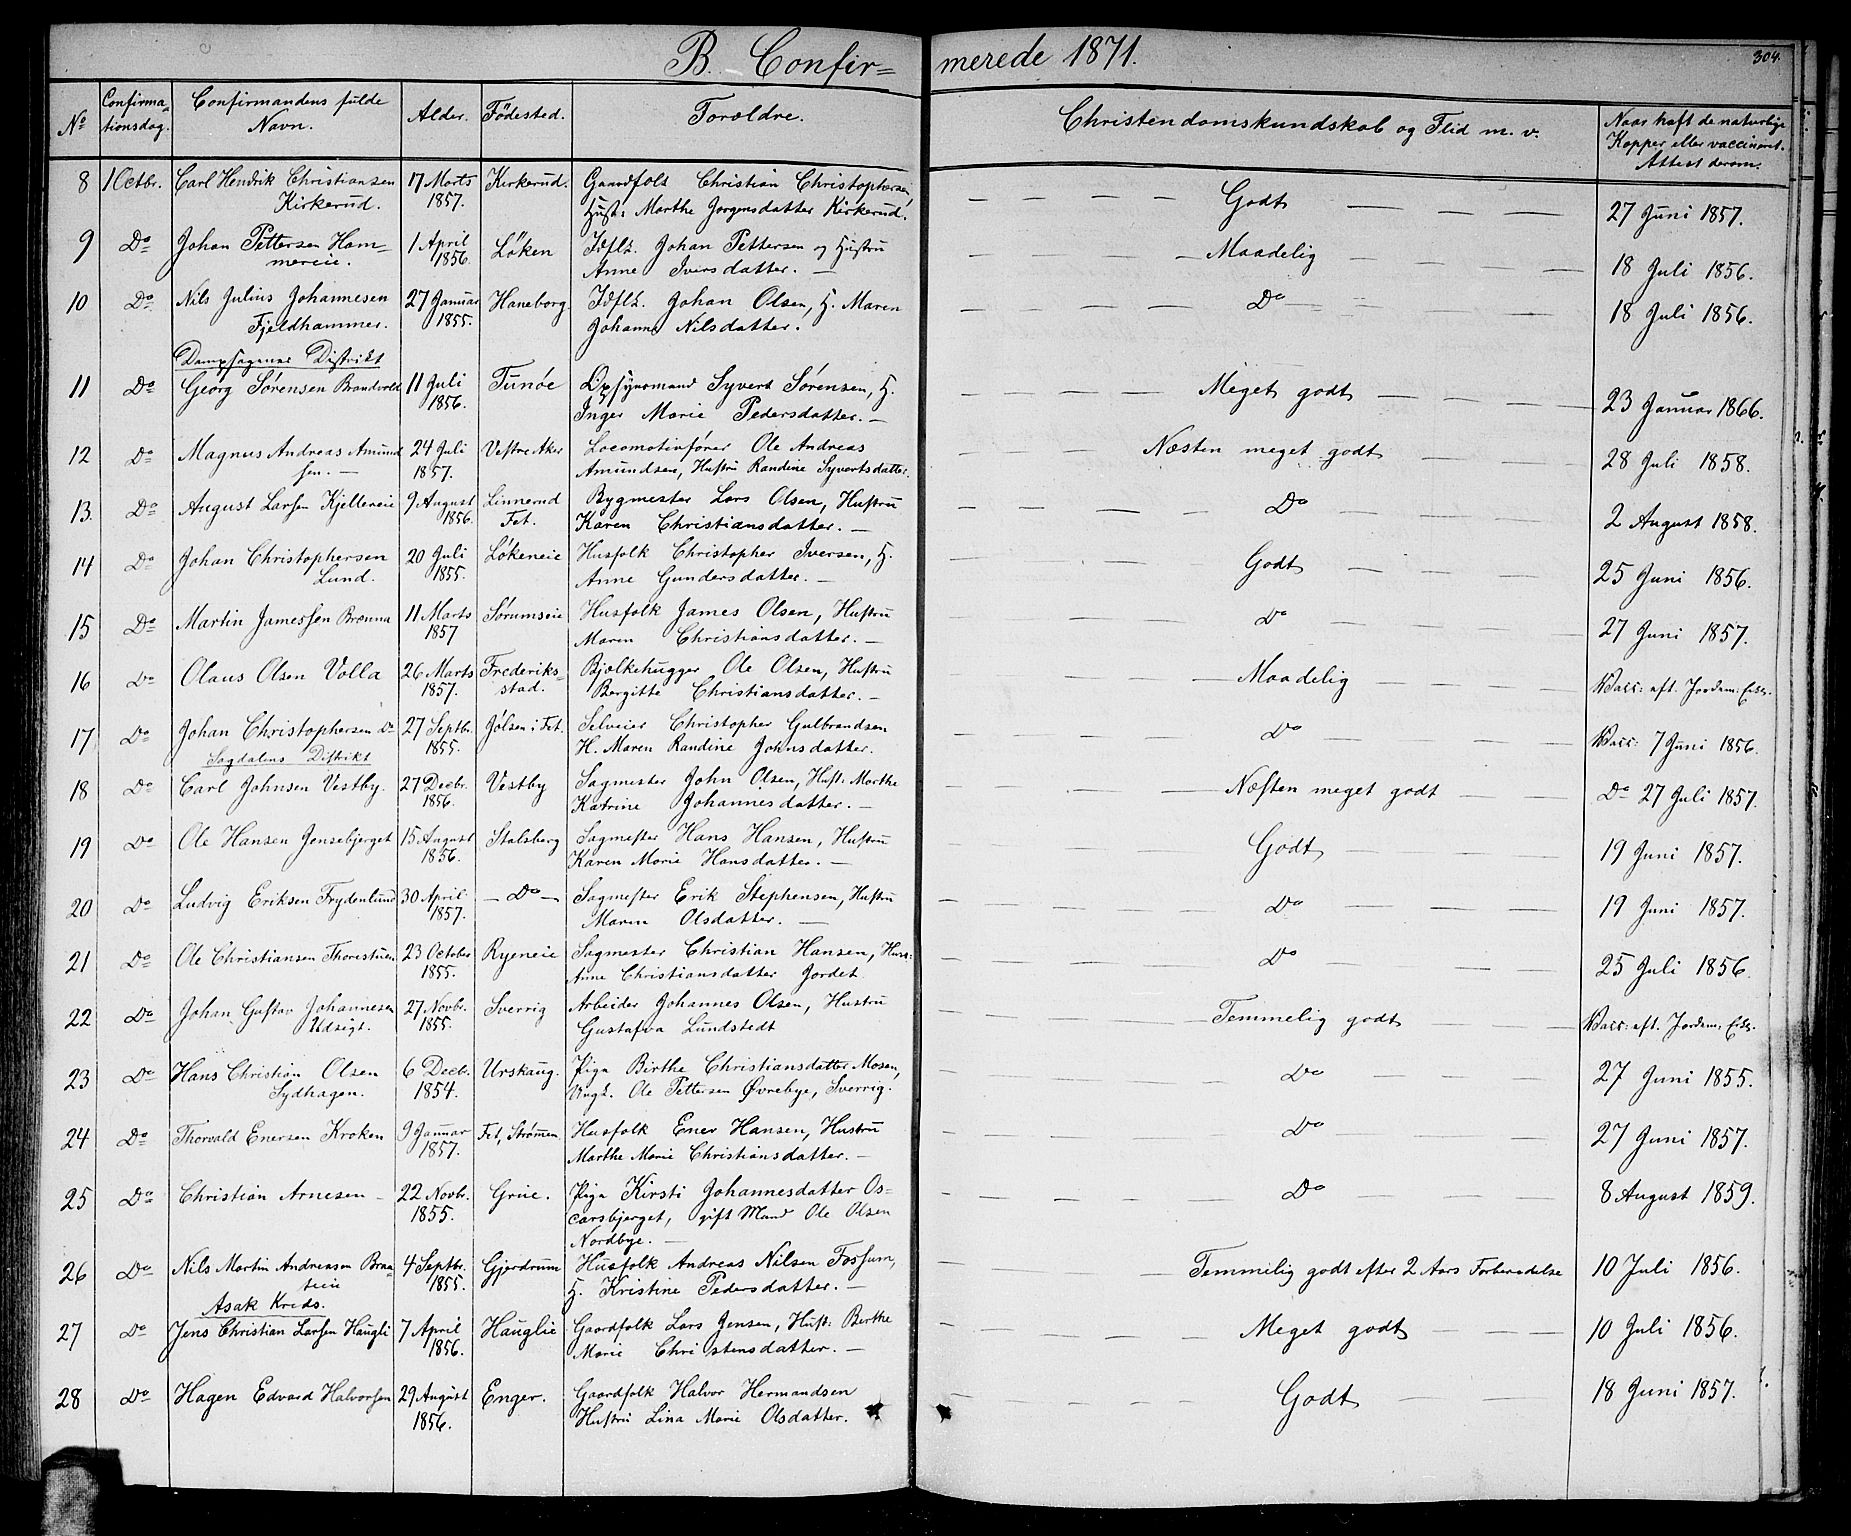 B. Confirmerede 1871.
304.
No Confirmationsdag. Confirmandens fulde Navn. Alder. Födested. Foræeldre. Christendomskundskab og Flid m. v. Naar haft de naturlige Kopper eller vaccineret. Attest derom.
8 1 Octbr. Carl Hendrik Christiansen Kirkerud. 17 Marts 1857. Kirkerud. Gaardfolk Christian Christophersen, Hust: Marthe Jørgensdatter Kirkerud. Godt 27 Juni 1857.
9 Do Johan Pettersen Hammereie. 1 April 1856. Löken Idflk. Johan Pettersen og Hustru Anne Iversdatter. — Maadelig 18 Juli 1856.
10 Do Nils Julius Johannesen Fjeldhammer. 27 Januar 1855. Haneborg. Idflk. Johan Olsen, H. Maren Johanne Nilsdatter. Do 18 Juli 1856.
Dampsagenes Distrikt
11 Do Georg Sörensen Brandvold 11 Juli 1856. Tunöe Opsynsmand Syvert Sörensen, H. Inger Marie Pedersdatter. — Meget godt 23 Januar 1866.
12 Do Magnus Andreas Amundsen. — 24 Juli 1857. Vestre Aker Locomotivförer Ole Andreas Amundsen, Hustru Randine Syvertsdatter. Næsten meget godt 28 Juli 1858.
13. Do August Larsen Kjellereie 9 August 1856. Linnerud Fet. Bygmester Lars Olsen, Hustru Karen Christiansdatter. — Do 2 August 1858.
14 Do Johan Christophersen Lund. 20 Juli 1855. Lökeneie Husfolk Christopher Iversen, H. Anne Gundersdatter. — Godt 25 Juni 1856.
15 Do Martin Jamessen Brænna 11 Marts 1857 Sörumseie Husfolk James Olsen, Hustru Maren Christiansdatter. — Do 27 Juni 1857.
16 Do Olaus Olsen Volla 26 Marts 1857. Frederiksstad. Bjelkehugger Ole Olsen, Hustru Bergitte Christiansdatter. — Maadelig Vacc: eft. Jordem: Erkl.
17 Do Johan Christophersen Do 27 Septbr. 1855. Jölsen i Fet. Selveier Christopher Gulbrandsen H. Maren Randine Johnsdatter. Do Vacc: 7 Juni 1856.
Sagdalens Distrikt
18 Do Carl Johnsen Vestby. 27 Decbr. 1856. Vestby Sagmester John Olsen, Hust: Marthe Katrine Johannesdatter. — Næsten meget godt Do 27 Juli 1857.
19 Do Ole Hansen Jensebjerget 15 August 1856. Stalsberg Sagmester Hans Hansen, Hustru Karen Marie Hansdatter. — Godt 19 Juni 1857.
20 Do Ludvig Eriksen Frydenlund 30 April 1857. — Do — Sagmester Erik Stephensen, Hustru Maren Olsdatter. — Do 19 Juni 1857.
21 Do Ole Christiansen Thorestuen 23 October 1855. Ryeneie Sagmester Christian Hansen, Hust: Anne Christiansdatter Jordet Do 25 Juli 1856.
22 Do Johan Gustav Johannesen Udsigt. 27 Novbr. 1855. Sverrig Arbeider Johannes Olsen, Hustru Gustafva Lundstedt Temmelig godt Vacc: eft. Jordem: Erkl.
23 Do Hans Christian Olsen Sydhagen. 6 Decbr. 1854. Urskaug. Piga Birthe Christiansdatter Mosen, Ungk. Ole Pettersen Øvrebye, Sverrig. Do 27 Juni 1855.
24 Do Thorvald Enersen Kroken 9 Januar 1857. Fet, Strømen Husfolk Ener Hansen, Hustru Marthe Marie Christiansdatter. — Do 27 Juni 1857.
25 Do Christian Arnesen — 22 Novbr. 1855. Grue. Piga Kirsti Johannesdatter Oscarsbjerget, gift Mand Ole Olsen Nordbye. — Do 8 August 1859.
26 Do Nils Martin Andreasen Braateie 4 Septbr. 1855. Gjerdrum Husfolk Andreas Nilsen Fossum, H. Kristine Pedersdatter. — Temmelig godt efter 2 Aars Forberedelse 10 Juli 1856.
Asak Kreds.
27 Do Jens Christian Larsen Haugli 7 April 1856. Hauglie Gaardfolk Lars Jensen, Hust: Berthe Marie Christensdatter. — Meget godt 10 Juli 1856.
28 Do Hagen Edvard Halvorsen 29 August 1856. Enger. Gaardfolk Halvor Hermandsen Hustru Lina Marie Olsdatter. Godt 18 Juni 1857.